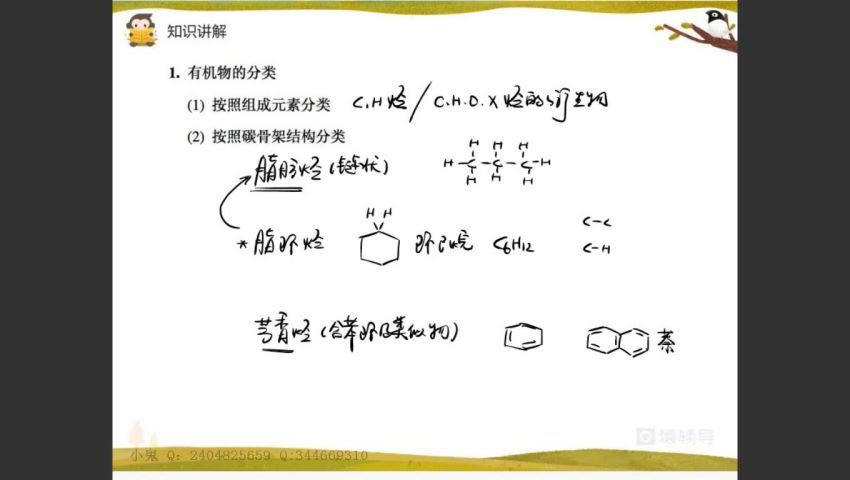 知识讲解
1. 有机物的分类
(1) 按照组成元素分类 C.H 烃 / C.H.O.X 烃的衍生物
(2) 按照碳骨架结构分类
脂肪烃 (链状)
H H H
H-C-C-C-H
H H H
H H
* 脂环烃 环己烷 C6H12
C-C
C-H
芳香烃 (含苯环及类似物) 萘
猿辅导
小鬼 Q: 2404825659 Q:344669310